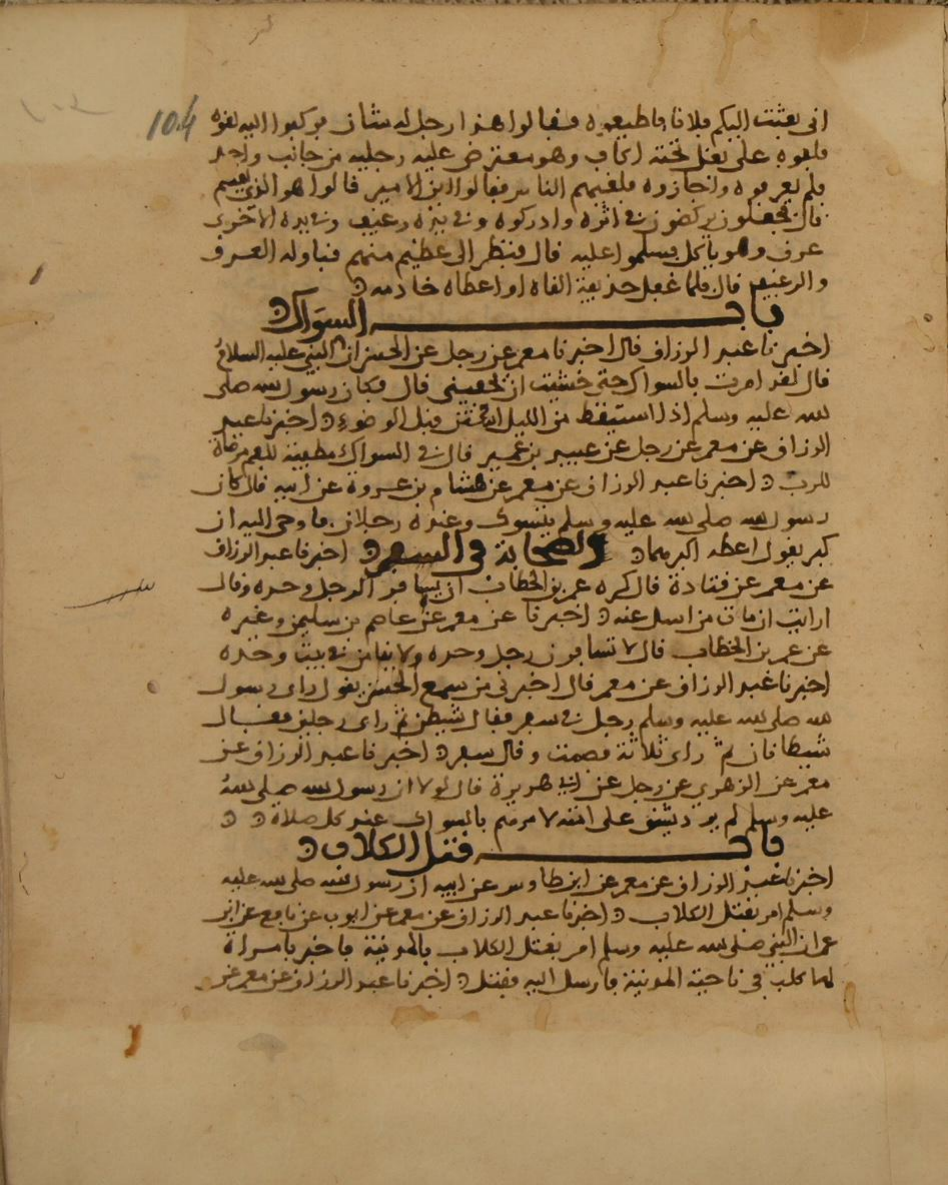 104
اني بعثت اليكم فلانا فاطيعوه فقالوا هذا رجل له شان فركبوا اليه لقوه
فلقوه على بغل تحته اكاف وهو معترض عليه رجليه من جانب واحد
فلم يعرفوه واجازوه فلقيهم الناس فقالوا اين الامير قالوا هو الذي لقيتم
قال فجعلوا يركضون في اثره وادركوه وفي يده رغيف وفي يده الاخرى
عرق وهو ياكل فسلموا عليه قال فنظر الى عظيم منهم فناوله العرق
والرغيف قال فلما غفل حذيفة القاه او اعطاه خادمه
باب السواك
اخبرنا عبد الرزاق قال اخبرنا معمر عن رجل عن الحسن ان النبي عليه السلام
قال لقد امرت بالسواك حتى خشيت ان يحفيني قال فكان رسول الله صلى
الله عليه وسلم اذا استيقظ من الليل استن قبل الوضوء اخبرنا عبد
الرزاق عن معمر عن رجل عن عبيد بن عمير قال في السواك مطيبة للفم مرضاة
للرب اخبرنا عبد الرزاق عن معمر عن هشام بن عروة عن ابيه قال كان
رسول الله صلى الله عليه وسلم يتسوك وعنده رجلان فاوحى اليه ان
كبر يقول اعطه اكبرهما والصحابة في السفر اخبرنا عبد الرزاق
عن معمر عن قتادة قال كره عمر بن الخطاب ان يسافر الرجل وحده وقال
ارايت ان مات من اسل عنه اخبرنا عن معمر عن عاصم بن سليمن وغيره
عن عمر بن الخطاب قال لا تسافرن رجل وحده ولا ينامن في بيت وحده
اخبرنا عبد الرزاق عن معمر قال اخبرني من سمع الحسن يقول راى رسول
الله صلى الله عليه وسلم رجل في سفر فقال شيطن ثم راى رجلين فقال
شيطانان ثم راى ثلاثة فصمت وقال سفر اخبرنا عبد الرزاق عن
معمر عن الزهري عن رجل عن ابي هريرة قال لولا ان رسول الله صلى الله
عليه وسلم لم يرد يشق على امته لامرهم بالسواك عند كل صلاة
باب قتل الكلاب
اخبرنا عبد الرزاق عن معمر عن ابن طاوس عن ابيه ان رسول الله صلى الله عليه
وسلم امر بقتل الكلاب اخبرنا عبد الرزاق عن معمر عن ايوب عن نافع عن ابن
عمر ان النبي صلى الله عليه وسلم امر بقتل الكلاب بالمدينة فاخبر بامراة
لها كلب في ناحية المدينة فارسل اليه فقتل اخبرنا عبد الرزاق عن معمر عن